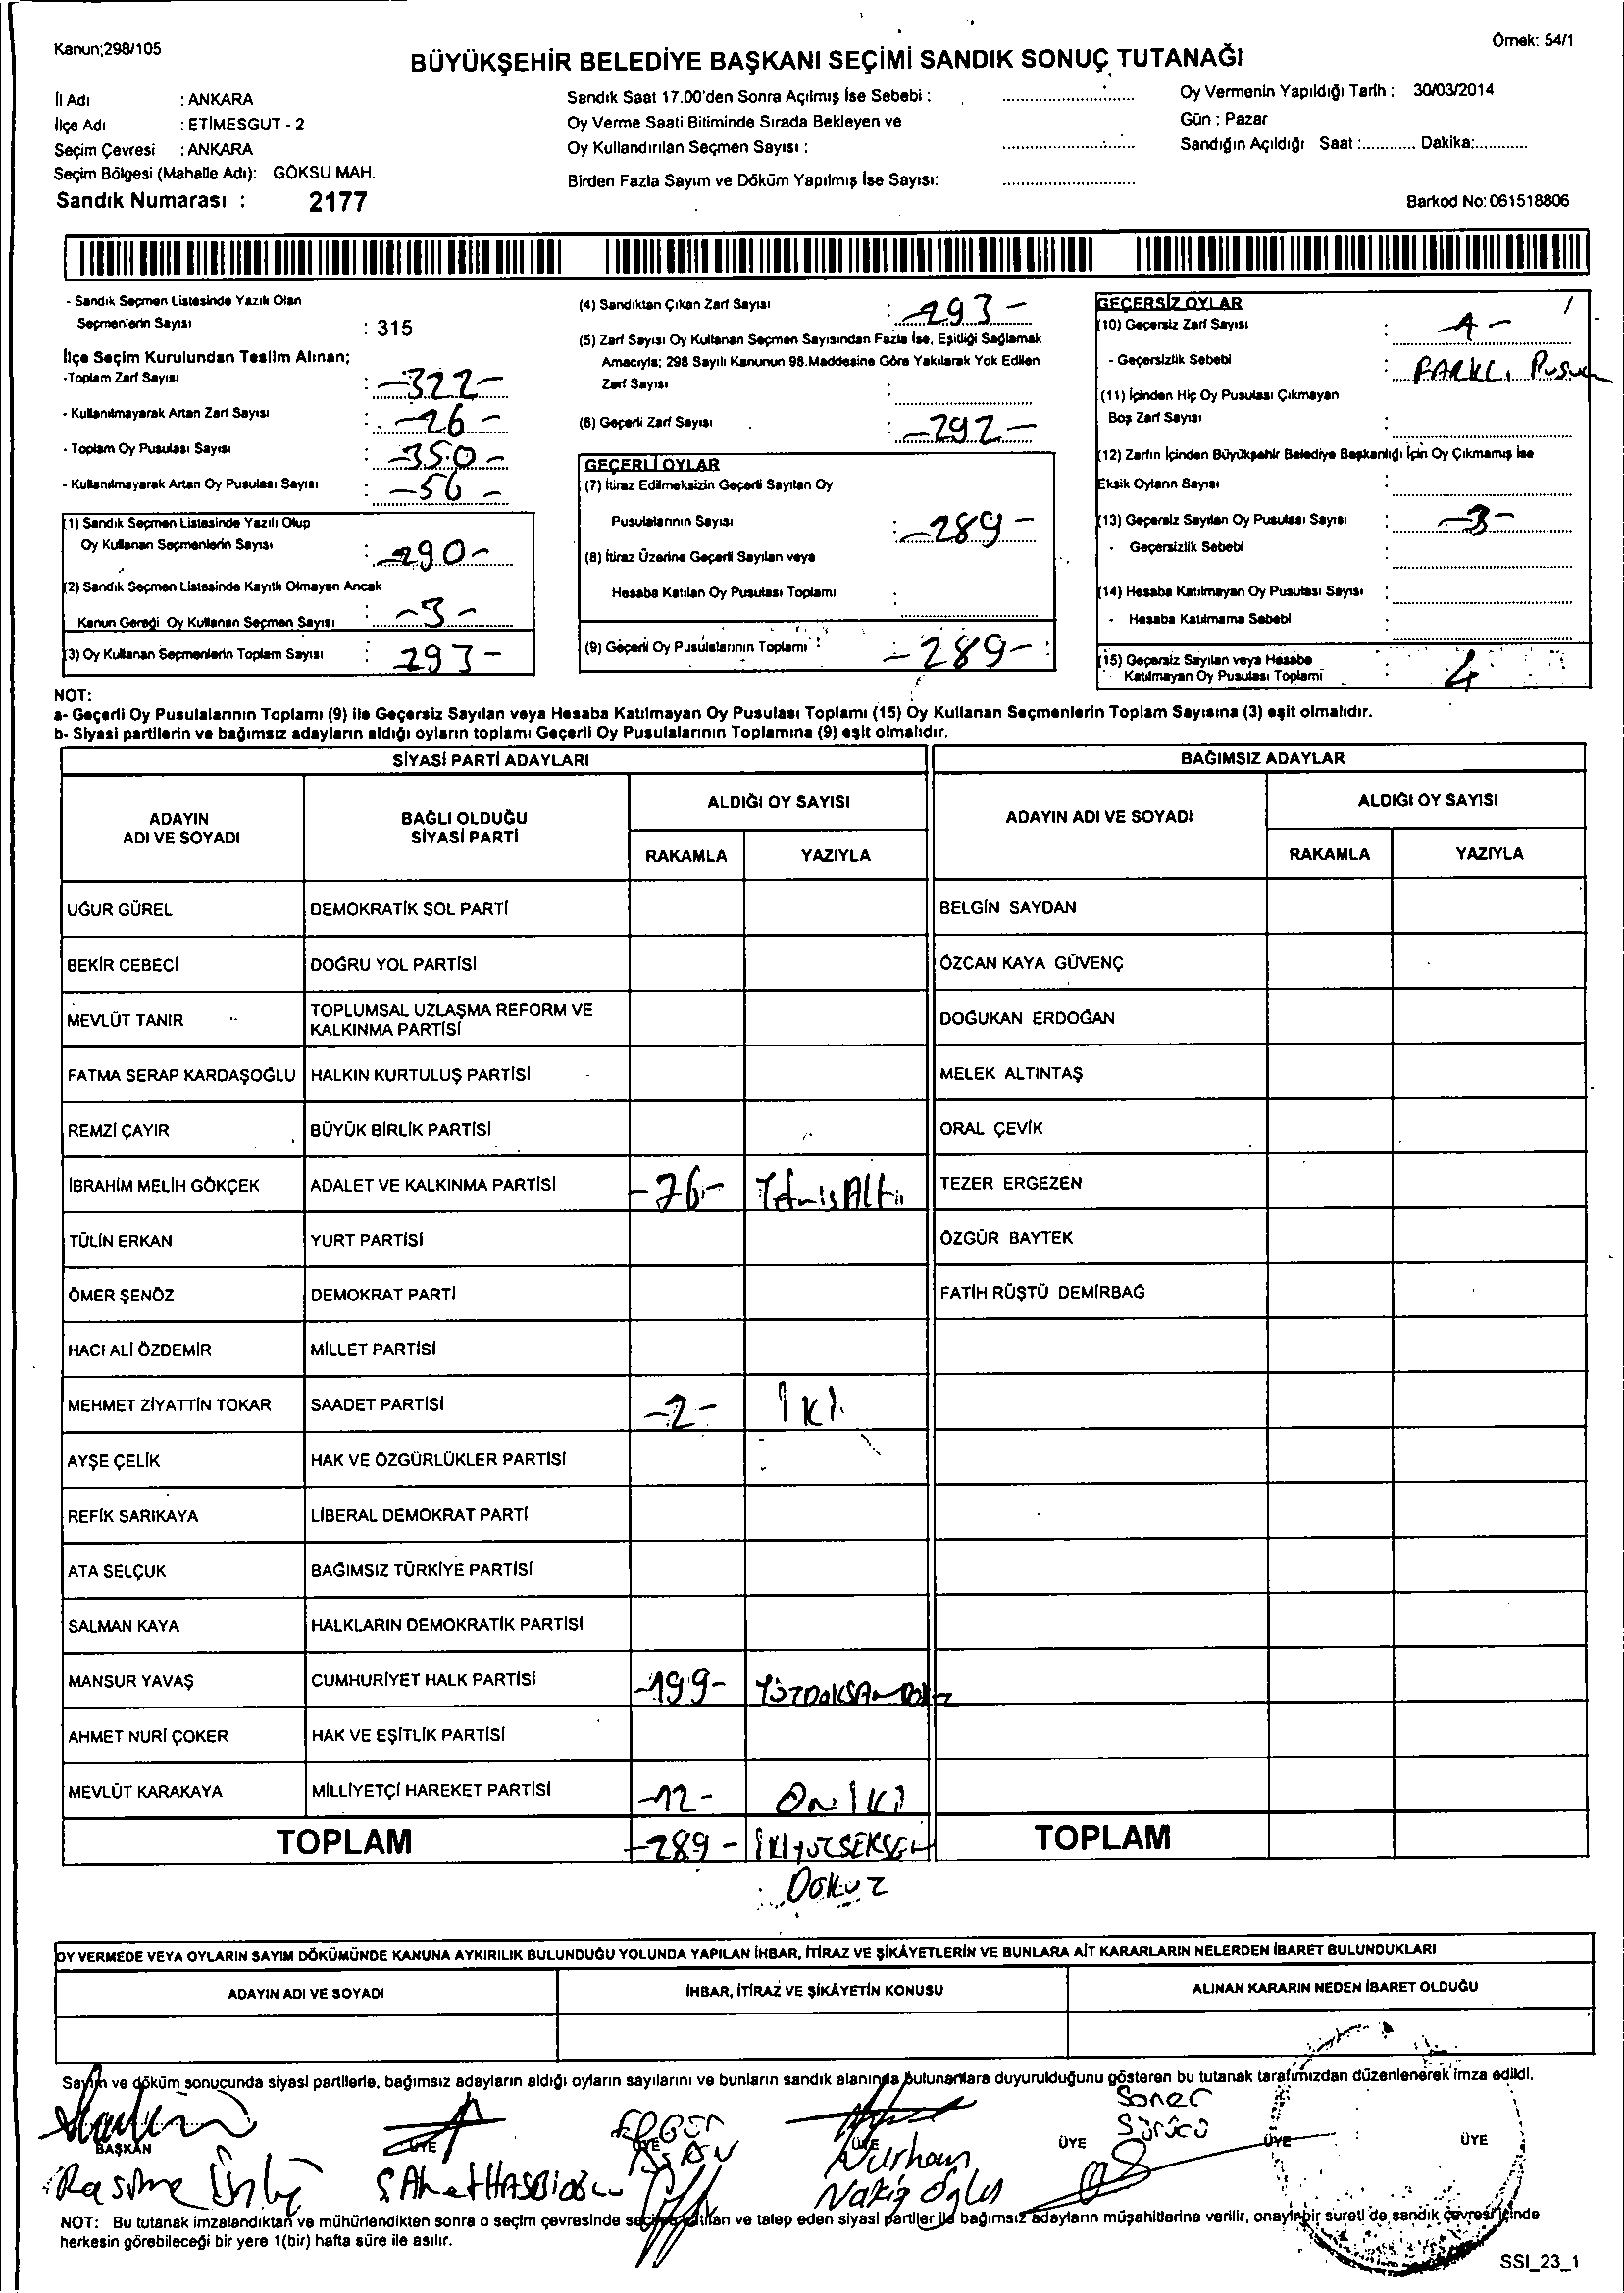 Kanun;298/105
Örnek: 54/1
BÜYÜKŞEHİR BELEDİYE BAŞKANI SEÇİMİ SANDIK SONUÇ TUTANAĞI
İl Adı : ANKARA
İlçe Adı : ETİMESGUT - 2
Seçim Çevresi : ANKARA
Seçim Bölgesi (Mahalle Adı): GÖKSU MAH.
Sandık Numarası : 2177
Sandık Saat 17.00'den Sonra Açılmış İse Sebebi :
Oy Verme Saati Bitiminde Sırada Bekleyen ve
Oy Kullandırılan Seçmen Sayısı :
Birden Fazla Sayım ve Döküm Yapılmış İse Sayısı:
Oy Vermenin Yapıldığı Tarih : 30/03/2014
Gün : Pazar
Sandığın Açıldığı Saat :............ Dakika:............
Barkod No: 061518806
- Sandık Seçmen Listesinde Yazılı Olan
Seçmenlerin Sayısı : 315
İlçe Seçim Kurulundan Teslim Alınan;
-Toplam Zarf Sayısı : -322-
- Kullanılmayarak Artan Zarf Sayısı : -26-
- Toplam Oy Pusulası Sayısı : -350-
- Kullanılmayarak Artan Oy Pusulası Sayısı : -56-
(1) Sandık Seçmen Listesinde Yazılı Olup
Oy Kullanan Seçmenlerin Sayısı : -290-
(2) Sandık Seçmen Listesinde Kayıtlı Olmayan Ancak
Kanun Gereği Oy Kullanan Seçmen Sayısı : -3-
(3) Oy Kullanan Seçmenlerin Toplam Sayısı : 293-
(4) Sandıktan Çıkan Zarf Sayısı : 293-
(5) Zarf Sayısı Oy Kullanan Seçmen Sayısından Fazla İse, Eşitliği Sağlamak
Amacıyla; 298 Sayılı Kanunun 98.Maddesine Göre Yakılarak Yok Edilen
Zarf Sayısı :
(6) Geçerli Zarf Sayısı : -292-
GEÇERLİ OYLAR
(7) İtiraz Edilmeksizin Geçerli Sayılan Oy
Pusulalarının Sayısı : -289-
(8) İtiraz Üzerine Geçerli Sayılan veya
Hesaba Katılan Oy Pusulası Toplamı :
(9) Geçerli Oy Pusulalarının Toplamı : -289-
GEÇERSİZ OYLAR
(10) Geçersiz Zarf Sayısı : -1-
- Geçersizlik Sebebi : FARKLI Pusula
(11) İçinden Hiç Oy Pusulası Çıkmayan
Boş Zarf Sayısı :
(12) Zarfın İçinden Büyükşehir Belediye Başkanlığı İçin Oy Çıkmamış İse
Eksik Oyların Sayısı :
(13) Geçersiz Sayılan Oy Pusulası Sayısı : -3-
- Geçersizlik Sebebi :
(14) Hesaba Katılmayan Oy Pusulası Sayısı :
- Hesaba Katılmama Sebebi :
(15) Geçersiz Sayılan veya Hesaba
Katılmayan Oy Pusulası Toplamı : 4
NOT:
a- Geçerli Oy Pusulalarının Toplamı (9) ile Geçersiz Sayılan veya Hesaba Katılmayan Oy Pusulası Toplamı (15) Oy Kullanan Seçmenlerin Toplam Sayısına (3) eşit olmalıdır.
b- Siyasi partilerin ve bağımsız adayların aldığı oyların toplamı Geçerli Oy Pusulalarının Toplamına (9) eşit olmalıdır.
SİYASİ PARTİ ADAYLARI BAĞIMSIZ ADAYLAR
ADAYIN ADI VE SOYADI BAĞLI OLDUĞU SİYASİ PARTİ ALDIĞI OY SAYISI ADAYIN ADI VE SOYADI ALDIĞI OY SAYISI
RAKAMLA YAZIYLA RAKAMLA YAZIYLA
UĞUR GÜREL DEMOKRATİK SOL PARTİ BELGİN SAYDAN
BEKİR CEBECİ DOĞRU YOL PARTİSİ ÖZCAN KAYA GÜVENÇ
MEVLÜT TANIR TOPLUMSAL UZLAŞMA REFORM VE KALKINMA PARTİSİ DOĞUKAN ERDOĞAN
FATMA SERAP KARDAŞOĞLU HALKIN KURTULUŞ PARTİSİ MELEK ALTINTAŞ
REMZİ ÇAYIR BÜYÜK BİRLİK PARTİSİ ORAL ÇEVİK
İBRAHİM MELİH GÖKÇEK ADALET VE KALKINMA PARTİSİ -76- YetmişAltı TEZER ERGEZEN
TÜLİN ERKAN YURT PARTİSİ ÖZGÜR BAYTEK
ÖMER ŞENÖZ DEMOKRAT PARTİ FATİH RÜŞTÜ DEMİRBAĞ
HACI ALİ ÖZDEMİR MİLLET PARTİSİ
MEHMET ZİYATTİN TOKAR SAADET PARTİSİ -2- İKİ
AYŞE ÇELİK HAK VE ÖZGÜRLÜKLER PARTİSİ
REFİK SARIKAYA LİBERAL DEMOKRAT PARTİ
ATA SELÇUK BAĞIMSIZ TÜRKİYE PARTİSİ
SALMAN KAYA HALKLARIN DEMOKRATİK PARTİSİ
MANSUR YAVAŞ CUMHURİYET HALK PARTİSİ -199- YÜZDOKSAN DOKUZ
AHMET NURİ ÇOKER HAK VE EŞİTLİK PARTİSİ
MEVLÜT KARAKAYA MİLLİYETÇİ HAREKET PARTİSİ -12- ONİKİ
TOPLAM -289- İKİYÜZSEKSEN TOPLAM
DOKUZ
OY VERMEDE VEYA OYLARIN SAYIM DÖKÜMÜNDE KANUNA AYKIRILIK BULUNDUĞU YOLUNDA YAPILAN İHBAR, İTİRAZ VE ŞİKÂYETLERİN VE BUNLARA AİT KARARLARIN NELERDEN İBARET BULUNDUKLARI
ADAYIN ADI VE SOYADI İHBAR, İTİRAZ VE ŞİKÂYETİN KONUSU ALINAN KARARIN NEDEN İBARET OLDUĞU
Sayım ve döküm sonucunda siyasi partilerle, bağımsız adayların aldığı oyların sayılarını ve bunların sandık alanında bulunanlara duyurulduğunu gösteren bu tutanak tarafımızdan düzenlenerek imza edildi.
Soner
Sürücü
BAŞKAN ÜYE ÜYE ÜYE ÜYE ÜYE ÜYE
Nurhan
NOT: Bu tutanak imzalandıktan ve mühürlendikten sonra o seçim çevresinde seçime katılan ve talep eden siyasi partiler ile bağımsız adayların müşahitlerine verilir, onaylı bir sureti de sandık çevresi içinde
herkesin görebileceği bir yere 1(bir) hafta süre ile asılır.
SSI_23_1